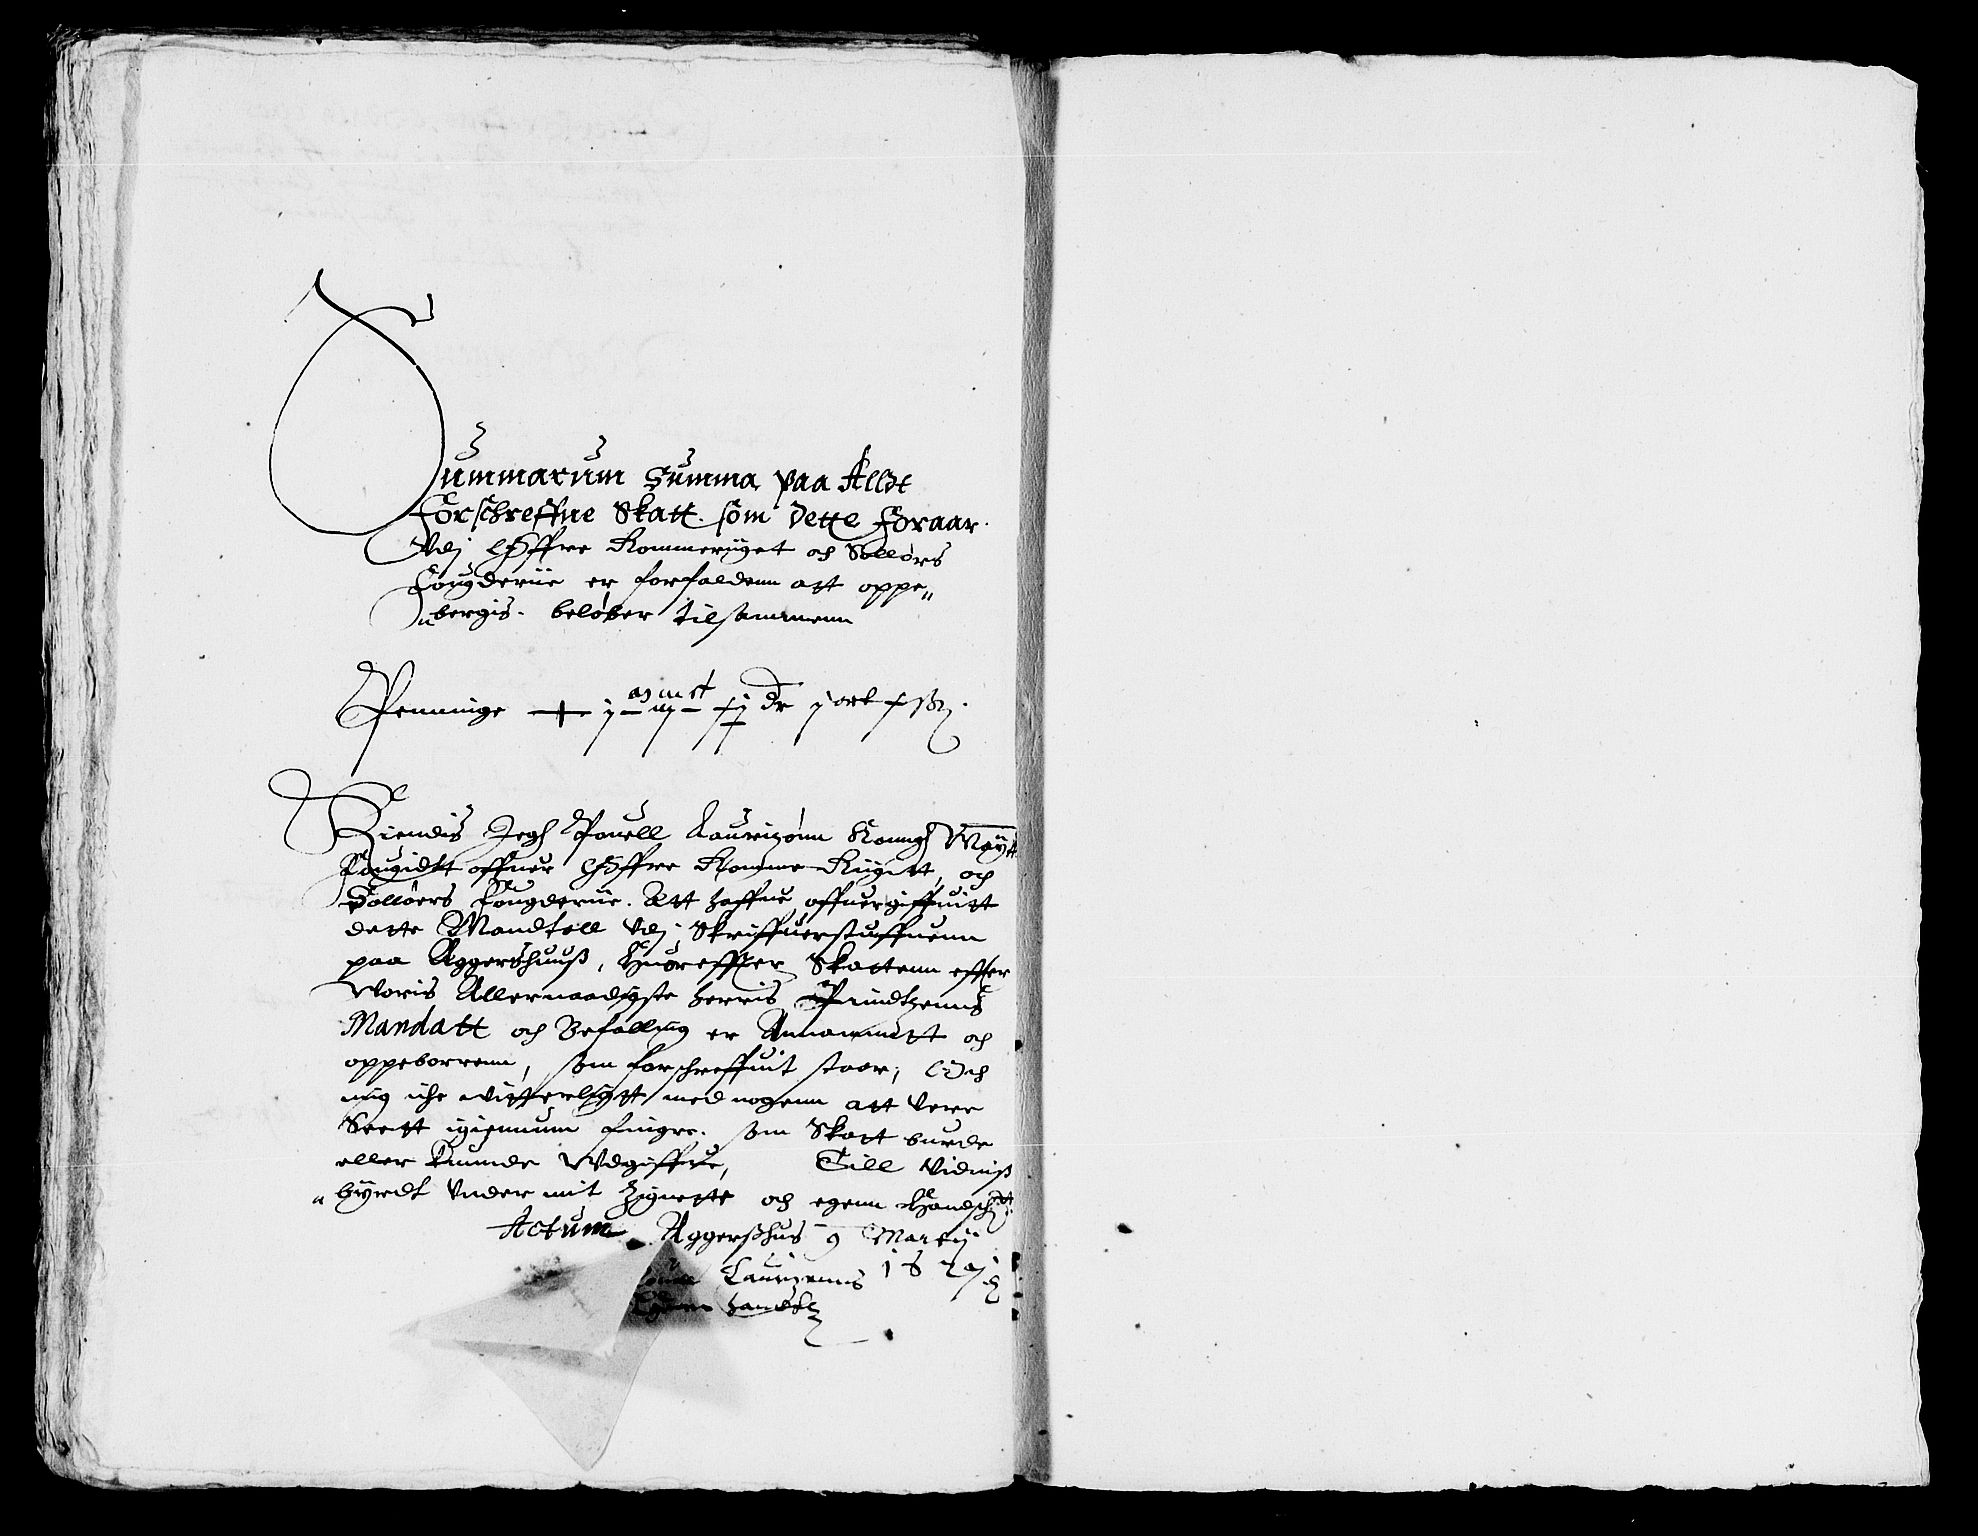 Summarum Summa paa Allt
Forschreffne Skatt. som dette Foraar.
Vdj Øffre Rommeriget och Solløers
Fougderiie er forfaldenn att oppe„
„bergis. beløber tilsammenn
Penninge
dr j ort
Kiendis Jegh Pouell Lauritzønn Konngl Maytt
Fougidtt offuer Øffre Romme Riigett, och
Solløers Fougderiie. Att haffue offuergiffuitt
dette Mandtall Vdj Skriffuerstuffuenn
paa Aggershuuß, Huoreffter Skattenn effter
Woris Allernaadigste Herris Printzenns
Mandatt och Befalling er Annammett och
oppeborrenn, som forschreffuit staar, Och
mig iche witterligtt med nogenn att vere
Seett igiennum fingre. som Skatt burde
eller Kunde Wdgiffue, Till Vidniß
„byrdt vnder mit Zignette och egenn Handschr
Actum Aggerßhus 9 Martij
Lauritzenns 1 6
Egenn Handt